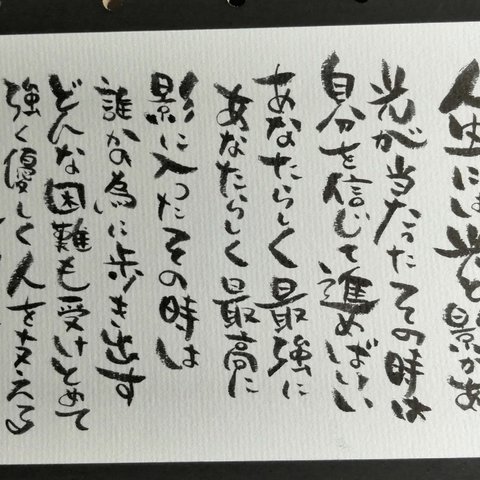 人生には光と影があ
光が当たったその時は
自分を信じて進めばいい
あなたらしく最強に
あなたらしく最高に
影に入ったその時は
誰かの為に歩き出す
どんな困難も受けとめて
強く優しく人を支える